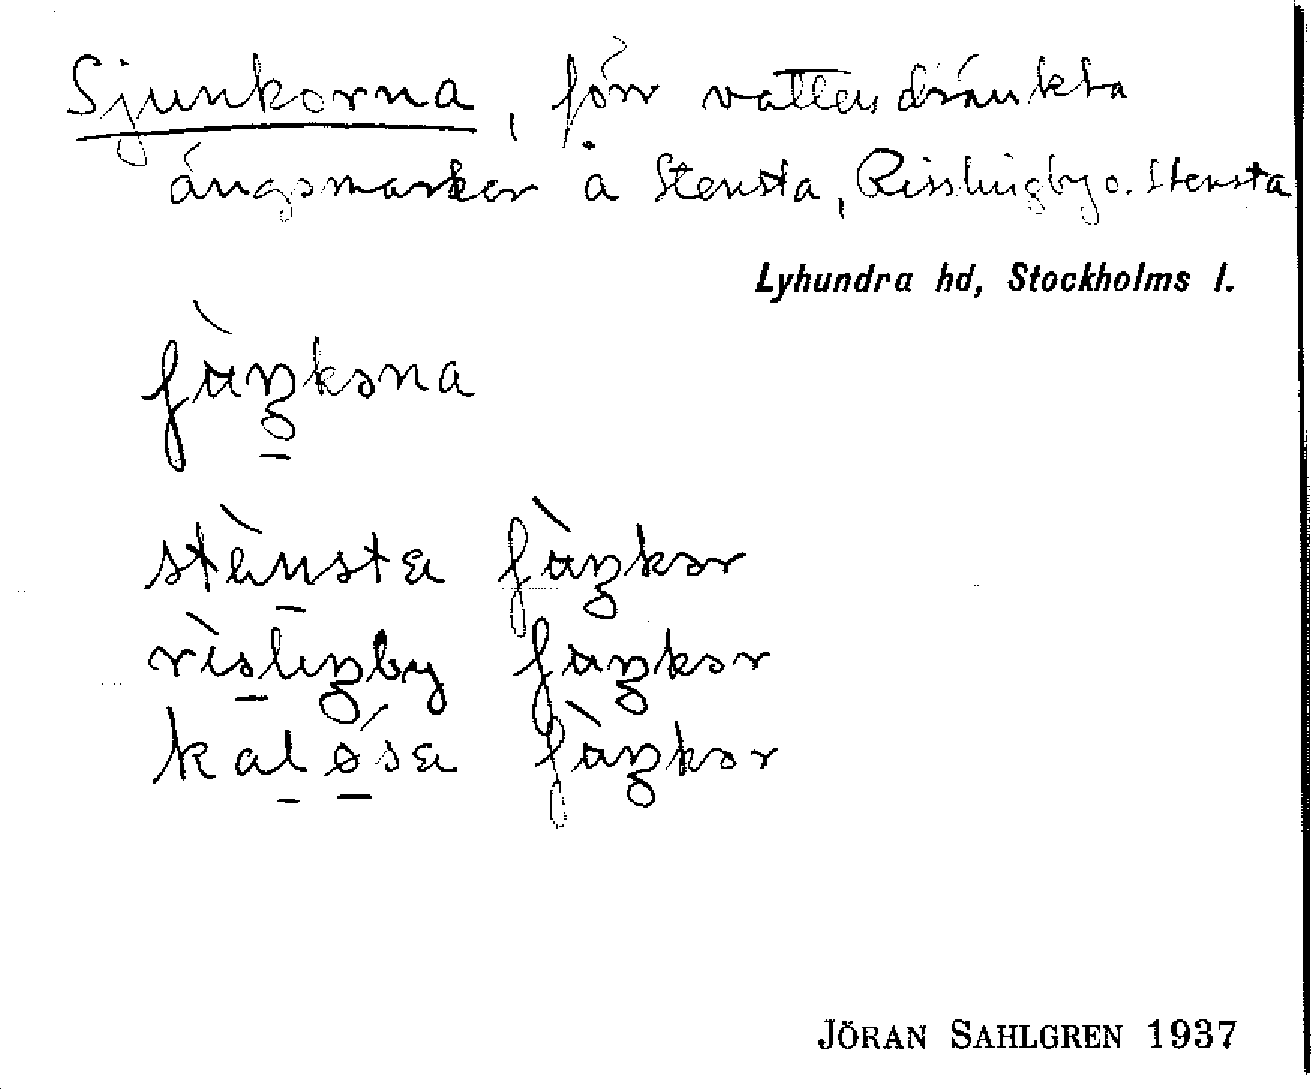 Sjunkorna, förr vattendränkta
ängsmarker å Stensta, Risslingby o. Stensta
Lyhundra hd, Stockholms l.
ʃùŋkəna
stènsta ʃùŋkər
rìsliŋby ʃuŋkər
kaløsa ʃùŋkər
JÖRAN SAHLGREN 1937